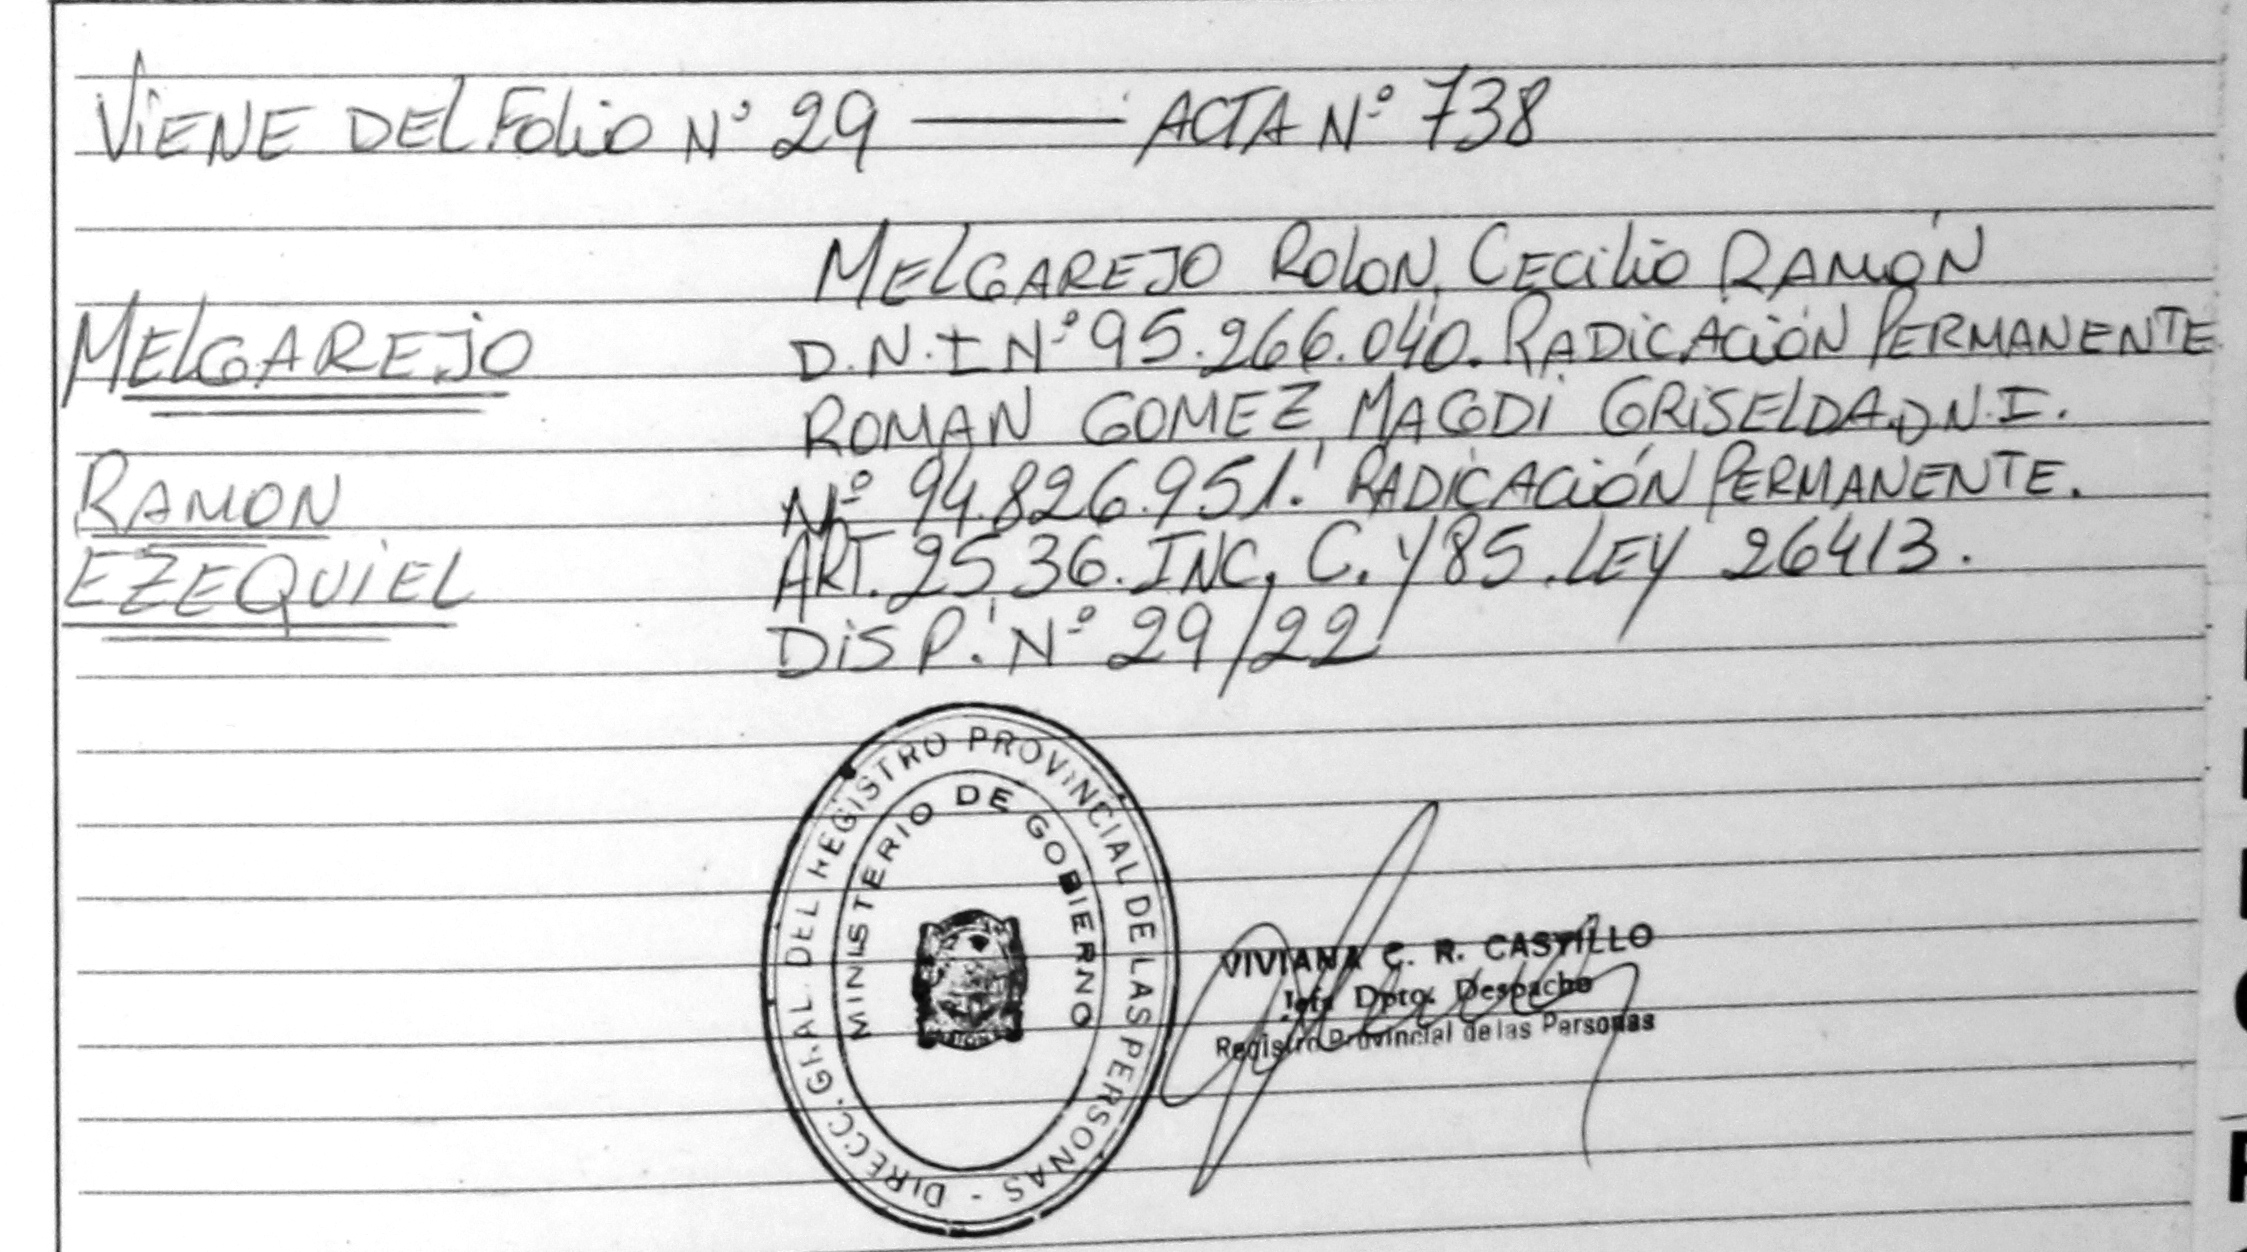 ViENE DEL Folio Nº 29 —— ACTA Nº 738
MELGAREJO ROLON, CECiliO RAMÓN
D.N.I Nº 95.266.040. RADiCACiÓN PERMANENTE
ROMAN GOMEZ, MAGDi GRiSELDA. D.N.I.
Nº 94.826.951. RADiCACiÓN PERMANENTE.
ART. 25, 36. INC, C. Y 85. LEY 26413.
DiSP. Nº 29/22
MELGAREJO
RAMON
EZEQUiEL
DIRECC. GRAL. DEL REGISTRO PROVINCIAL DE LAS PERSONAS -
MINISTERIO DE GOBIERNO
VIVIANA C. R. CASTILLO
Jefa Dpto. Despacho
Registro Provincial de las Personas